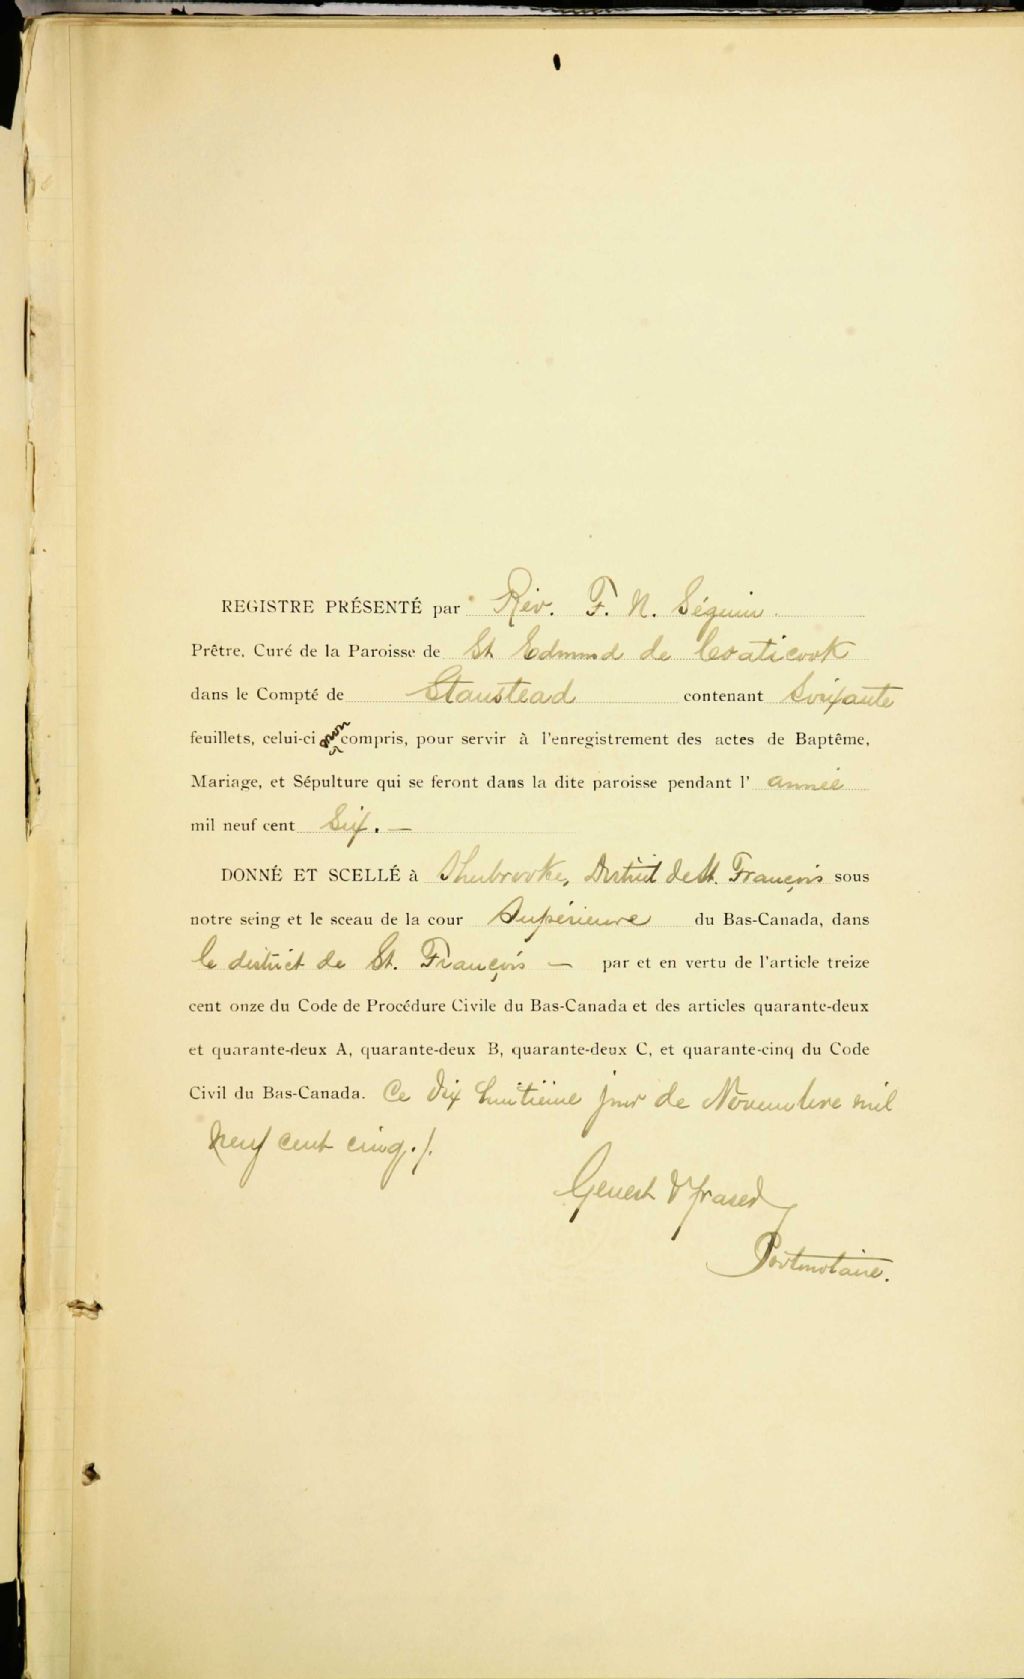 REGISTRE PRÉSENTÉ par Rév. F. N. Séguin.
Prêtre, Curé de la Paroisse de St Edmund de Coaticook
dans le Compté de Stanstead contenant Soixante
feuillets, celui-ci non compris, pour servir à l'enregistrement des actes de Baptême,
Mariage, et Sépulture qui se feront dans la dite paroisse pendant l' année
mil neuf cent Six. —
DONNÉ ET SCELLÉ à Sherbrooke, District de St. François sous
notre seing et le sceau de la cour Supérieure du Bas-Canada, dans
le district de St. François — par et en vertu de l'article treize
cent onze du Code de Procédure Civile du Bas-Canada et des articles quarante-deux
et quarante-deux A, quarante-deux B, quarante-deux C, et quarante-cinq du Code
Civil du Bas-Canada. Ce dix huitième jour de Novembre mil
neuf cent cinq./.
Genest & Fraser
Protonotaire.